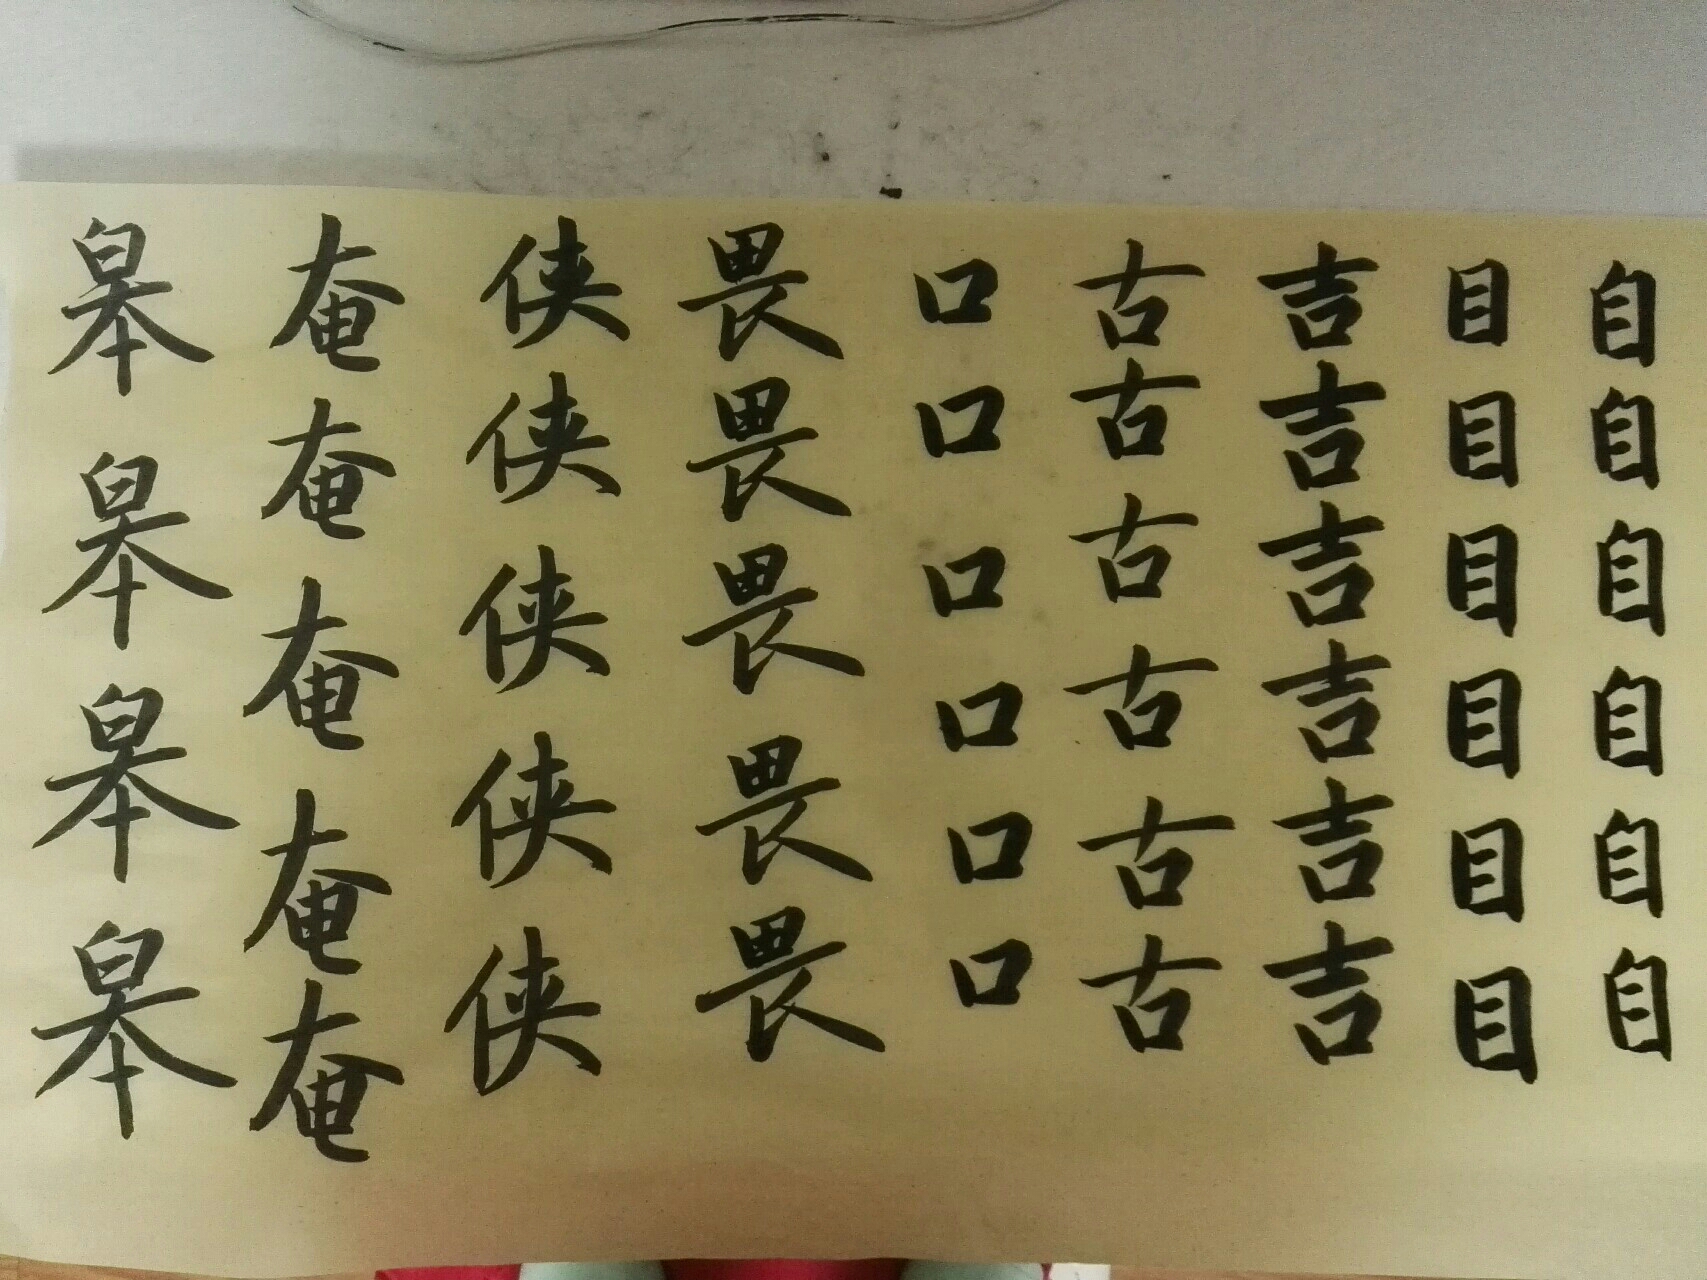 自自自自自自
目目目目目目
吉吉吉吉吉吉
古古古古古古
口口口口口口
畏畏畏畏畏
侠侠侠侠侠
奄奄奄奄奄
皋皋皋皋